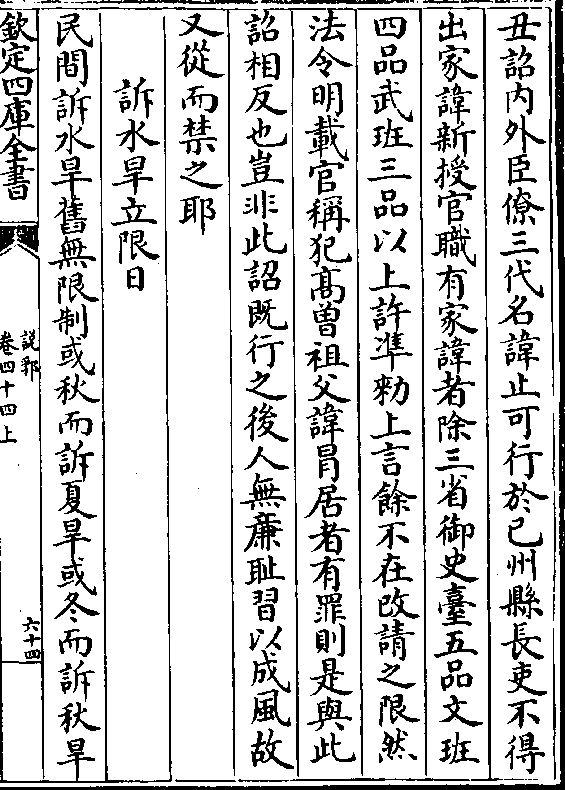 丑詔内外臣僚三代名諱止可行於己州縣長吏不得
出家諱新授官職有家諱者除三省御史臺五品文班
四品武班三品以上許凖勑上言餘不在改請之限然
法令明載官稱犯髙曽祖父諱冐居者有罪則是與此
詔相反也豈非此詔既行之後人無亷耻習以成風故
又從而禁之耶
訴水旱立限日
民間訴水旱舊無限制或秋而訴夏旱或冬而訴秋旱
欽定四庫全書
說郛
卷四十四上
六十四